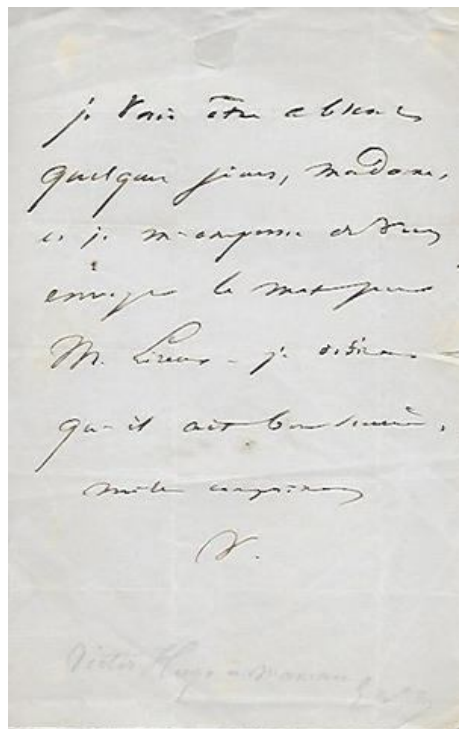 je vais être absent
quelques jours, madame,
et je m'empresse de vous
envoyer le mot pour
M. Lireux - je désire
qu'il ait bon succès.
mille
V.
Victor Hugo à maman